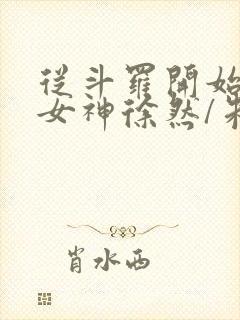 從斗羅開始
女神徐然/朱
肖水西